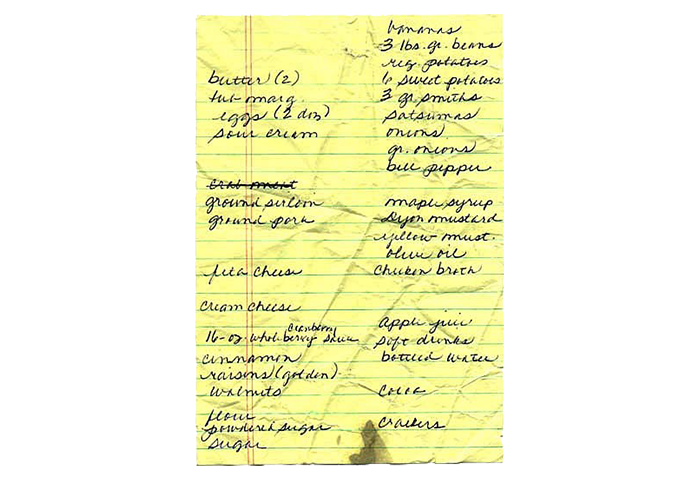 butter (2)
tub marg.
eggs (2 doz)
sour cream
crab meat
ground sirloin
ground pork
feta cheese
cream cheese
cranberry
16-oz. whole berry sauce
cinnamon
raisins (golden)
walnuts
flour
powdered sugar
sugar
bananas
3 lbs. gr. beans
reg potatoes
6 sweet potatoes
3 gr. smiths
satsumas
onions
gr. onions
bell pepper
maple syrup
Dijon mustard
yellow must.
olive oil
chicken broth
apple juice
soft drinks
bottled water
cocoa
crackers